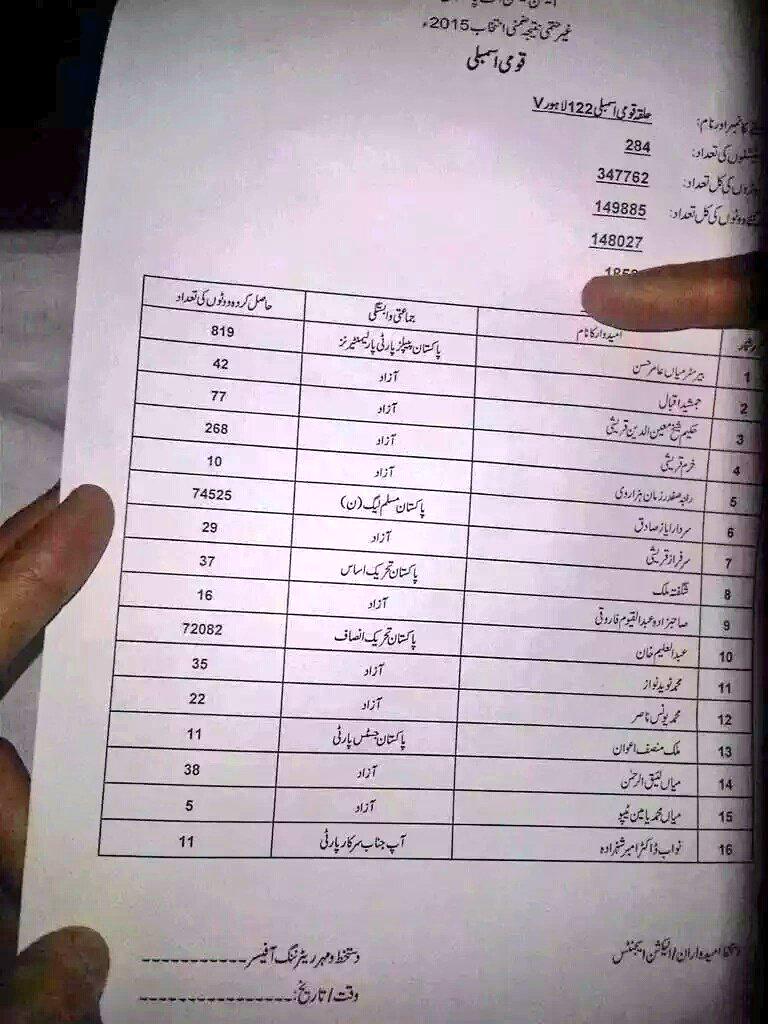 غیر حتمی نتیجہ ضمنی انتخاب 2015ء
قومی اسمبلی
کا نمبر اور نام: حلقہ قومی اسمبلی 122 لاہور V
کی تعداد: 284
کی کل تعداد: 347762
ووٹوں کی کل تعداد: 149885
148027
امیدوار کا نام جماعتی وابستگی حاصل کردہ ووٹوں کی تعداد
1 بیرسٹر میاں عامر حسن پاکستان پیپلز پارٹی پارلیمنٹیرینز 819
2 جمشید اقبال آزاد 42
3 حکیم شیخ معین الدین قریشی آزاد 77
4 خرم قریشی آزاد 268
5 راجہ صفدر زمان ہزاروی آزاد 10
6 سردار ایاز صادق پاکستان مسلم لیگ (ن) 74525
7 سرفراز قریشی آزاد 29
8 شگفتہ ملک پاکستان تحریک اساس 37
9 صاحبزادہ عبدالقیوم فاروقی آزاد 16
10 عبدالعلیم خان پاکستان تحریک انصاف 72082
11 محمد نوید نواز آزاد 35
12 محمد یونس ناصر آزاد 22
13 ملک منصف اعوان پاکستان جسٹس پارٹی 11
14 میاں لئیق الرحمٰن آزاد 38
15 میاں محمد یامین ٹیپو آزاد 5
16 نواب ڈاکٹر امبر شہزادہ آپ جناب سرکار پارٹی 11
دستخط امیدواران/الیکشن ایجنٹس دستخط و مہر ریٹرننگ آفیسر
وقت/تاریخ: